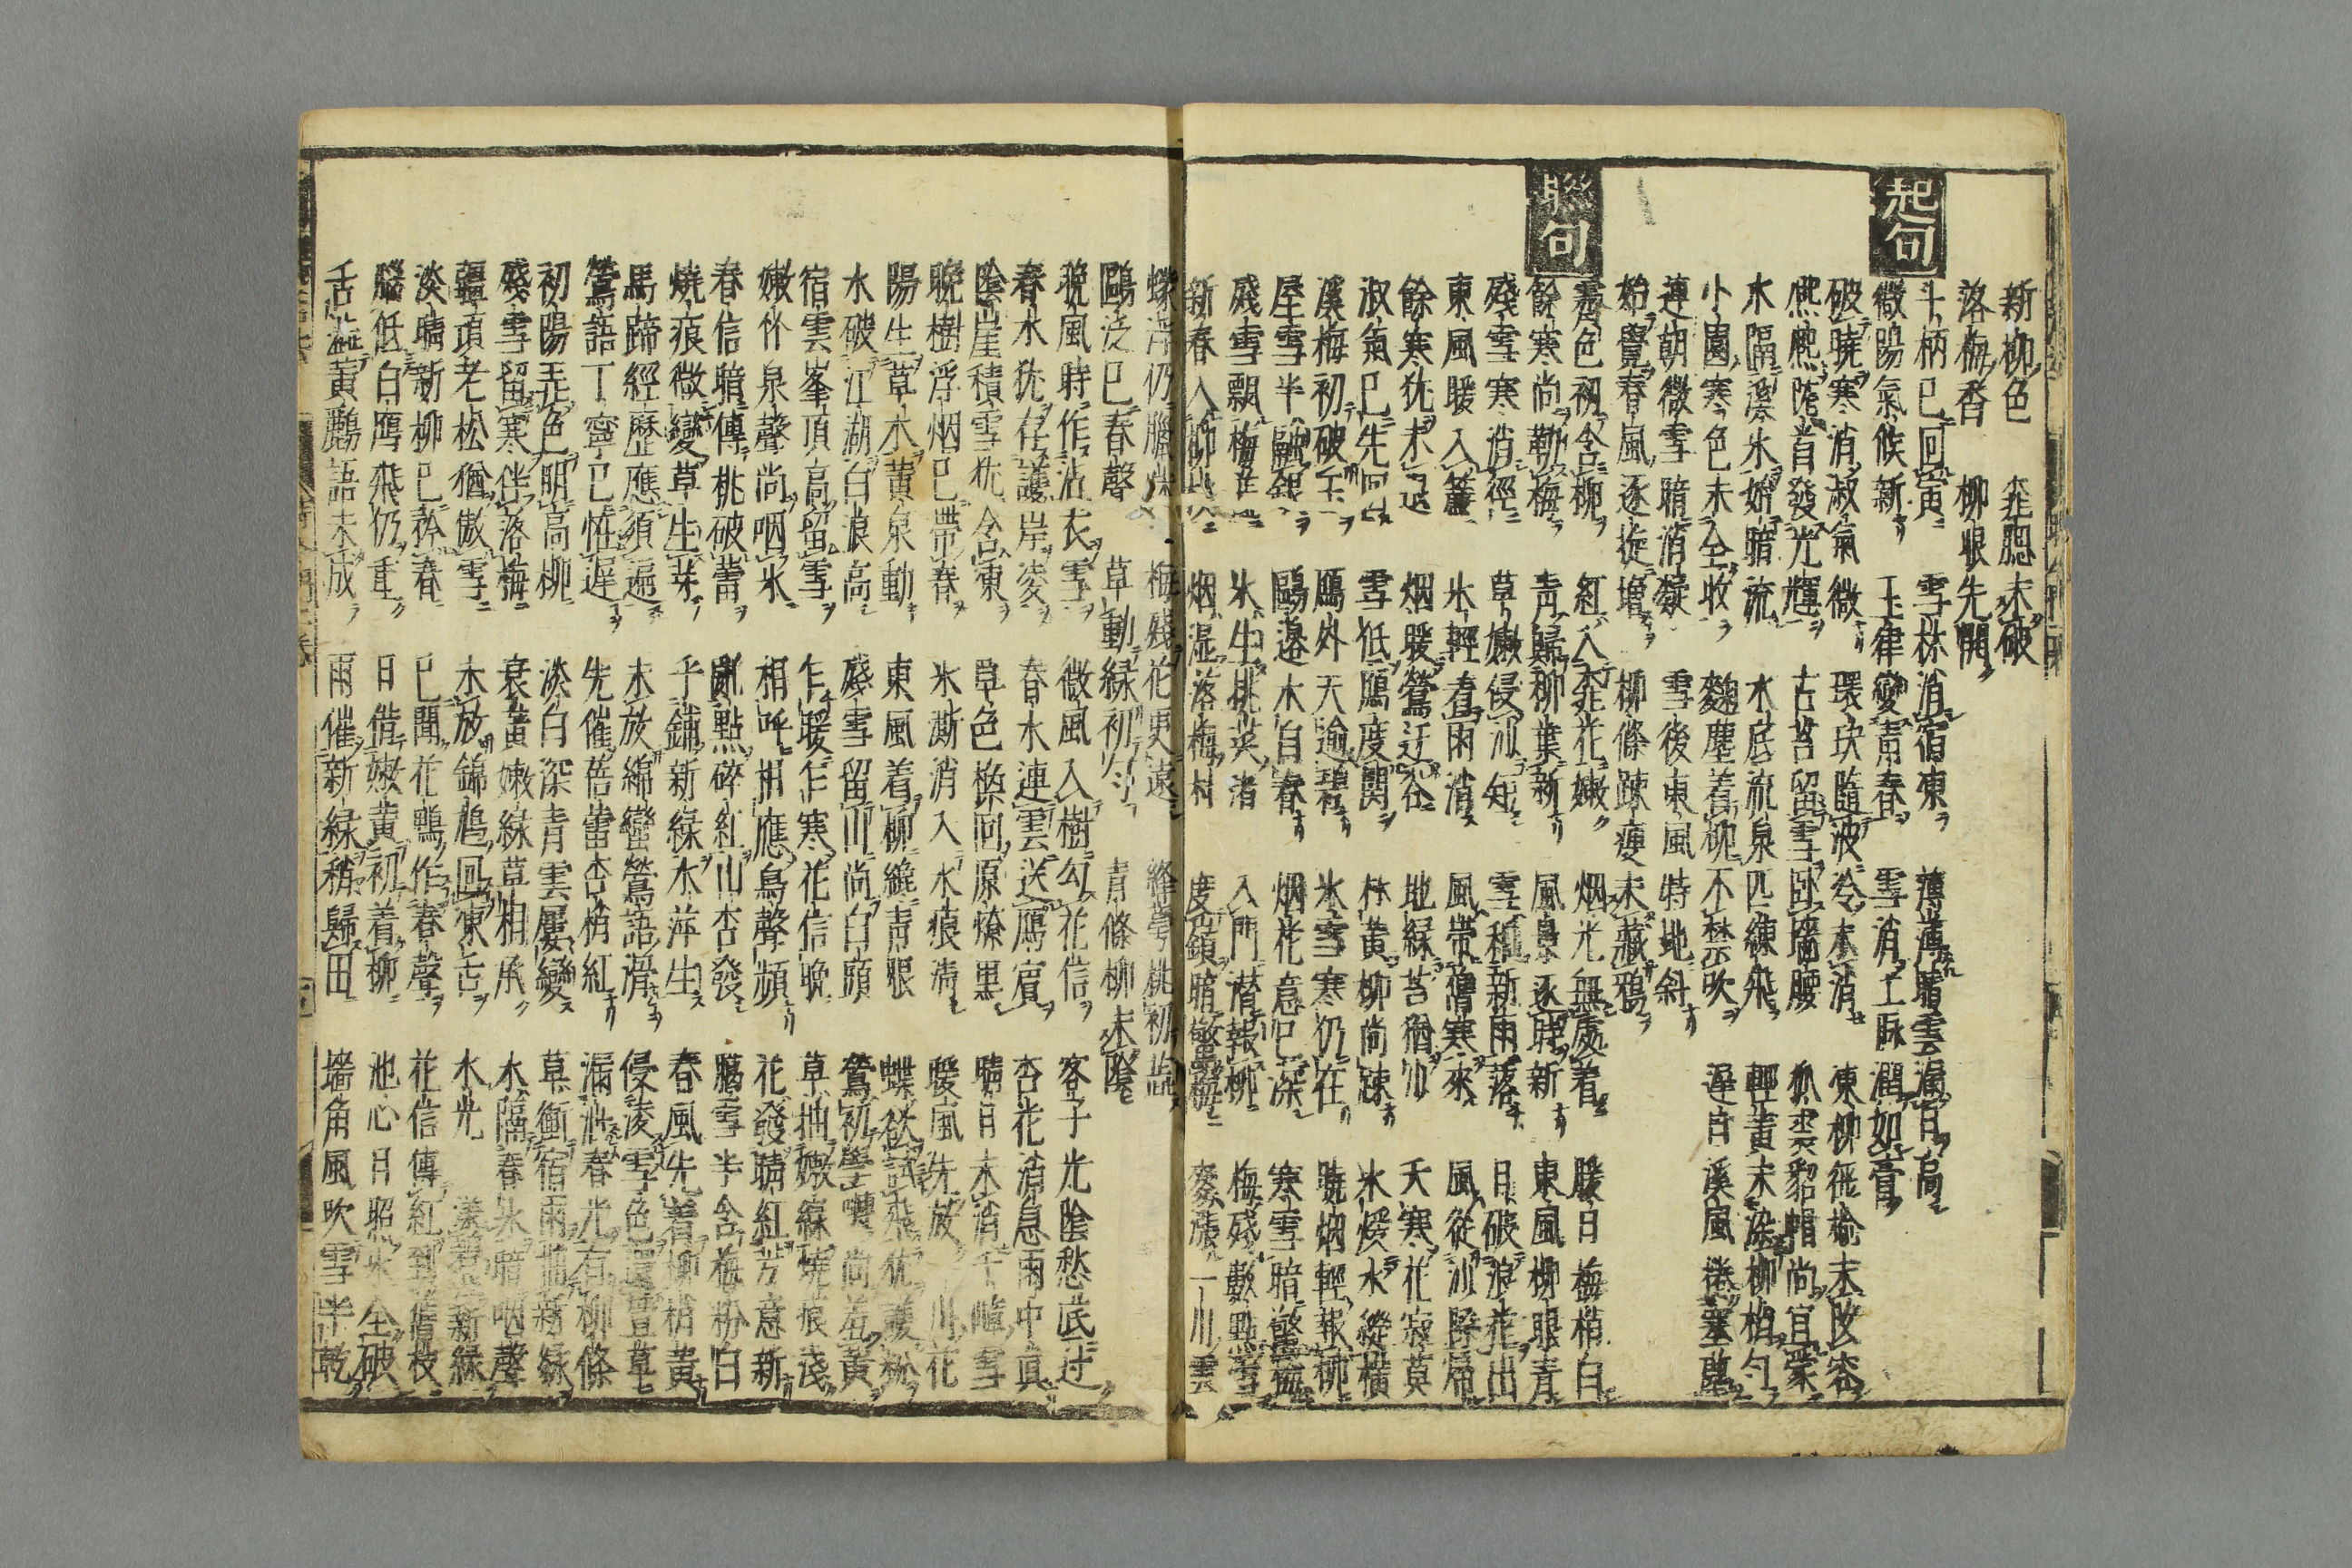 新柳色　桃腮未破
落梅香　柳眼先開
起句
斗柄已回寅　雪林消宿凍　薄薄晴雲漏日高
微陽氣候新　玉律變青春　雪消土脉潤如膏
破曉寒消淑氣微　環玦隨波冷未消　凍柳徘榆未改容
熙熙陰首發光輝　古苔留雪臥墻腰　狐裘貂帽尚宜蒙
水隔溪氷始暗流　水底流泉匹練飛　輕黃未染柳梢勻
小園寒色未全收　麴塵着柳不禁吹　遲日溪風捲塞塵
連朝微雪暗消凝　雪後東風特地斜
始覺春風逐旋增　柳條疎瘦未藏鴉
聯句
霽色初含柳　紅入桃花嫩　烟光無處着　暖日梅梢白
餘寒尚勒梅　青歸柳葉新　風鳥逐時新　東風柳眼青
殘雪寒消徑　草嫩侵沙短　雪和新雨落　日破浪花出
東風暖入簾　氷輕着雨消　風帶舊寒來　風從沙際歸
餘寒犹未退　烟暖鶯迁谷　地綠苔猶少　天寒花寂莫
淑氣已先回　雪低鴈度関　林黃柳尚疎　氷煖水縱橫
溪梅初破玉　鴈外天逾碧　氷雪寒仍在　曉烟輕報柳
屋雪半融銀　鷗邊水自春　烟花意已深　寒雪暗欺梅
殘雪飄梅　氷生挑菜渚　入門潜報柳　梅殘數點雪
新春入柳　烟湿落梅村　度嶺暗驚梅　麥漲一川雲
蟻浮仍臘　梅殘花更遠　絳萼桃初
鷗泛已春聲　草動綠初勻　青條柳未陰
晚風時作沾衣雪　微風入樹勾花信　客子光陰愁底过
春水犹存護岸凌　春水連雲送鴈賓　杏花消息雨中真
陰崖積雪犹含凍　草色檪回原燎黑　晴日未消千嶂雪
晚樹浮烟已帶春　氷澌消入水痕清　暖風先放一川花
陽生草木黃泉動　東風着柳縫青眼　蝶欲試飛犹護松
水破江湖白浪高　殘雪留川尚白頭　鶯初學囀尚羞黃
宿雲峯頂高留雪　乍暖乍寒花信晚　草抽嫩綠燒痕淺
嫩竹泉聲尚咽氷　相呼相應鳥聲頻　花發晴紅芳意新
春信暗傳桃破蕾　亂點碎紅山杏發　臘雪半含梅粉白
燒痕微變草生芽　平鋪新綠水萍生　春風先着柳梢黃
馬蹄經歷應須遍　未放綿蠻鶯語滑　侵凌雪色還萱草
鶯語丁寧已恠遲　先催蓓蕾杏梢紅　漏洩春光有柳條
初陽弄色明高柳　淡白深青雲屢變　草衝宿雨
殘雪留寒伴落梅　衰黃嫩綠草相承　水隔春氷暗咽聲
疆項老松猶傲雪　未放錦鳩回凍舌　水光　新綠
淡晴新柳已矜春　已聞花鴨作春聲　花信傳紅到舊枝
腦低白鴈飛仍重　日借嫩黃初着柳　池心日照氷全破
舌澁黃鸝語未成　雨催新綠稍歸田　墻角風吹雪半乾